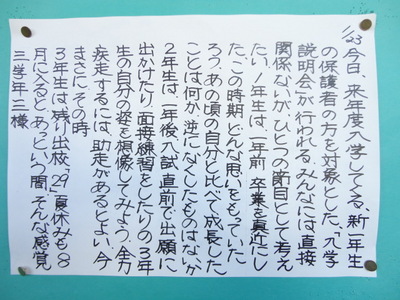 1/23 今日、来年度入学してくる、新一年生
の保護者の方を対象とした、「入学
説明会」が行われる。みんなには直接
関係ないが、ひとつの節目として考え
たい。1年生は、一年前 卒業を真近にし
た、この時期、どんな思いをもっていた
ろう。あの頃の自分と比べて、成長した
ことは何か、逆になくしたものはないか。
2年生は、一年後、入試直前で、出願に
出かけたり、面接練習をしたりの3年
生の自分の姿を想像してみよう。全力
疾走するには、助走があるとよい。今
まさに、その時
3年生は、残り出校「29」夏休みも8
月に入ると、あっという間、そんな感覚
三学年三様